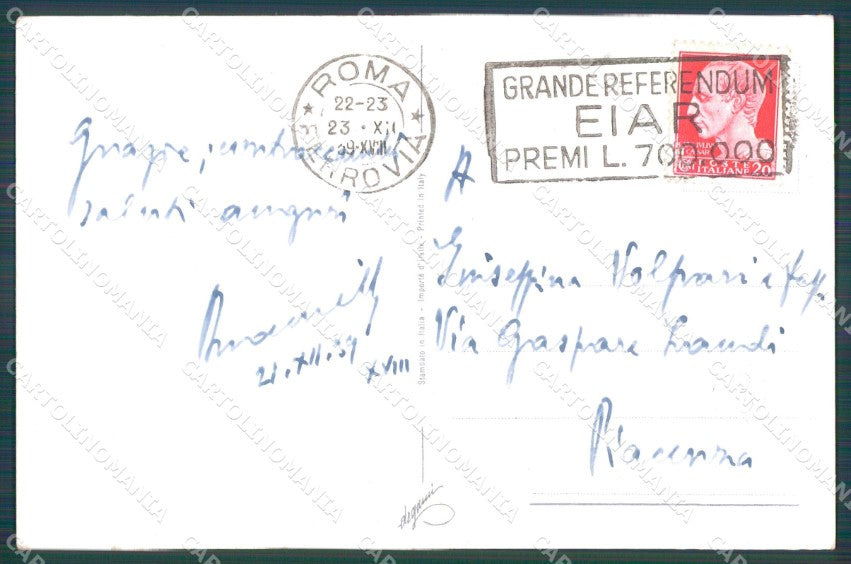 ROMA
22-23
23 · XII
39-XVIII
FERROVIA
GRANDE REFERENDUM
EIAR
PREMI L. 700.000
POSTE
ITALIANE 20
Grazie, contraccambi
saluti auguri
21.XII.39
XVIII
A
Giuseppina Volpari e fam.
Via Gaspare Landi
Piacenza
Stampato in Italia - Importé d'Italie - Printed in Italy
degami
CARTOLINOMANIA